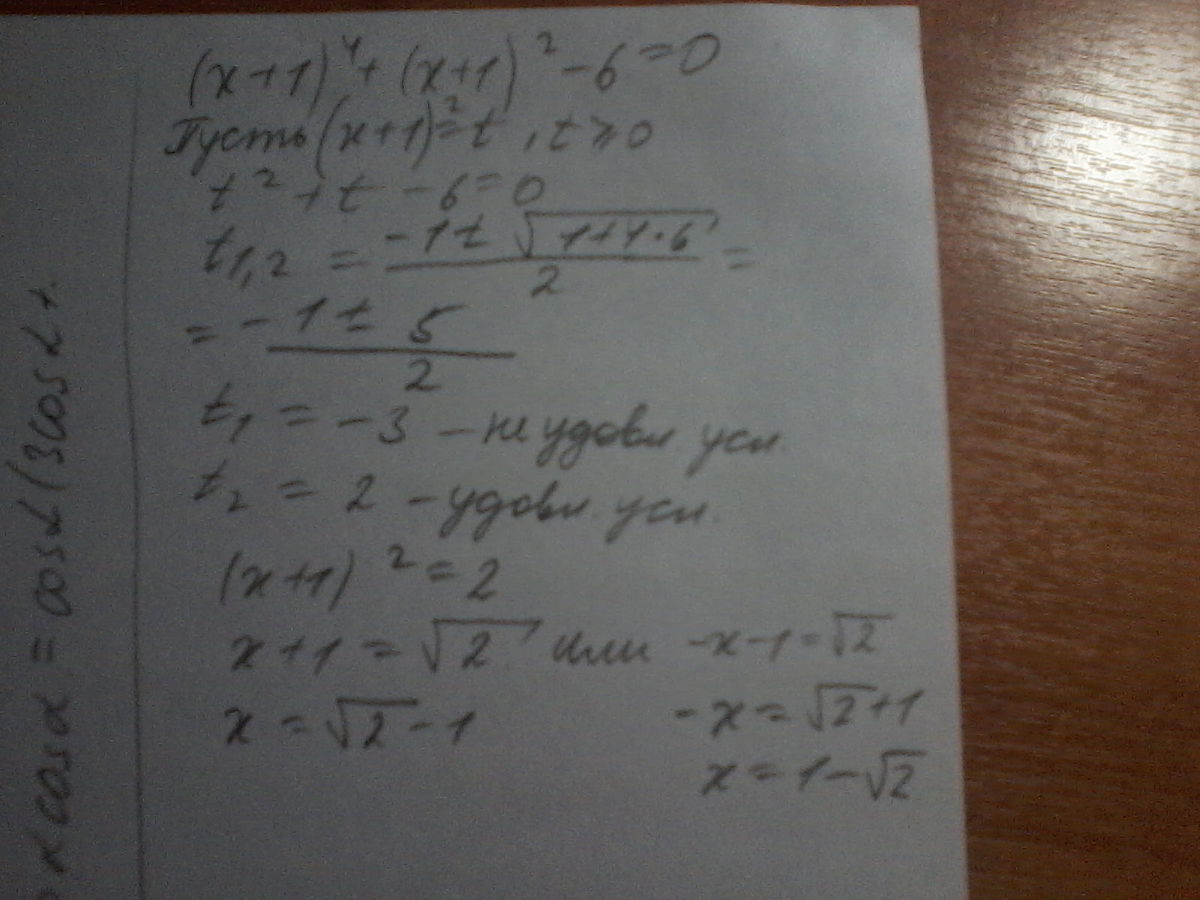 (x+1)⁴ + (x+1)² - 6 = 0
Пусть (x+1)² = t , t ⩾ 0
t² + t - 6 = 0
t₁,₂ = (-1 ± √(1+4·6)) / 2 =
= (-1 ± 5) / 2
t₁ = -3 - не удовл. усл.
t₂ = 2 - удовл. усл.
(x+1)² = 2
x+1 = √2 или -x-1 = √2
x = √2 - 1 -x = √2+1
x = 1-√2
cosα = cosα(3cosα+